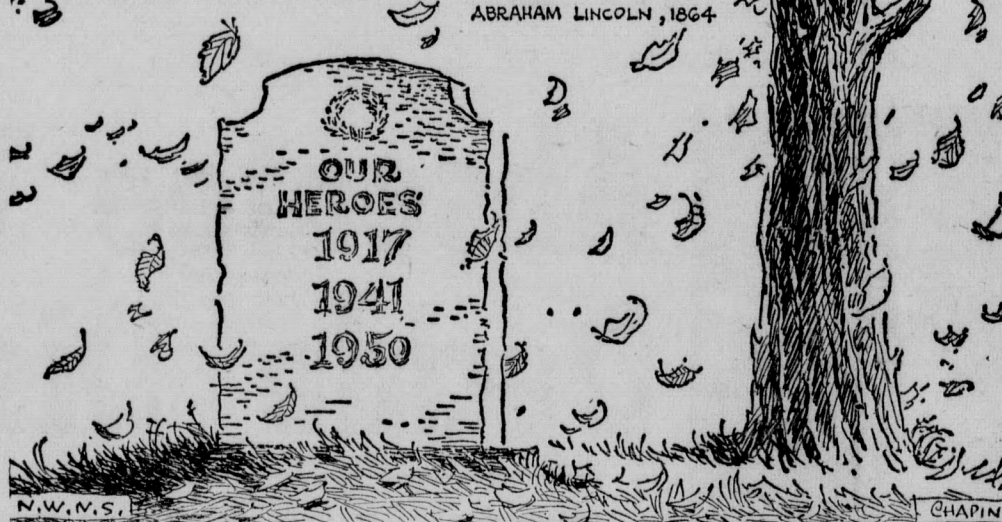 ABRAHAM LINCOLN, 1864
OUR
HEROES
1917
1941
1950
N.W.N.S.
CHAPIN